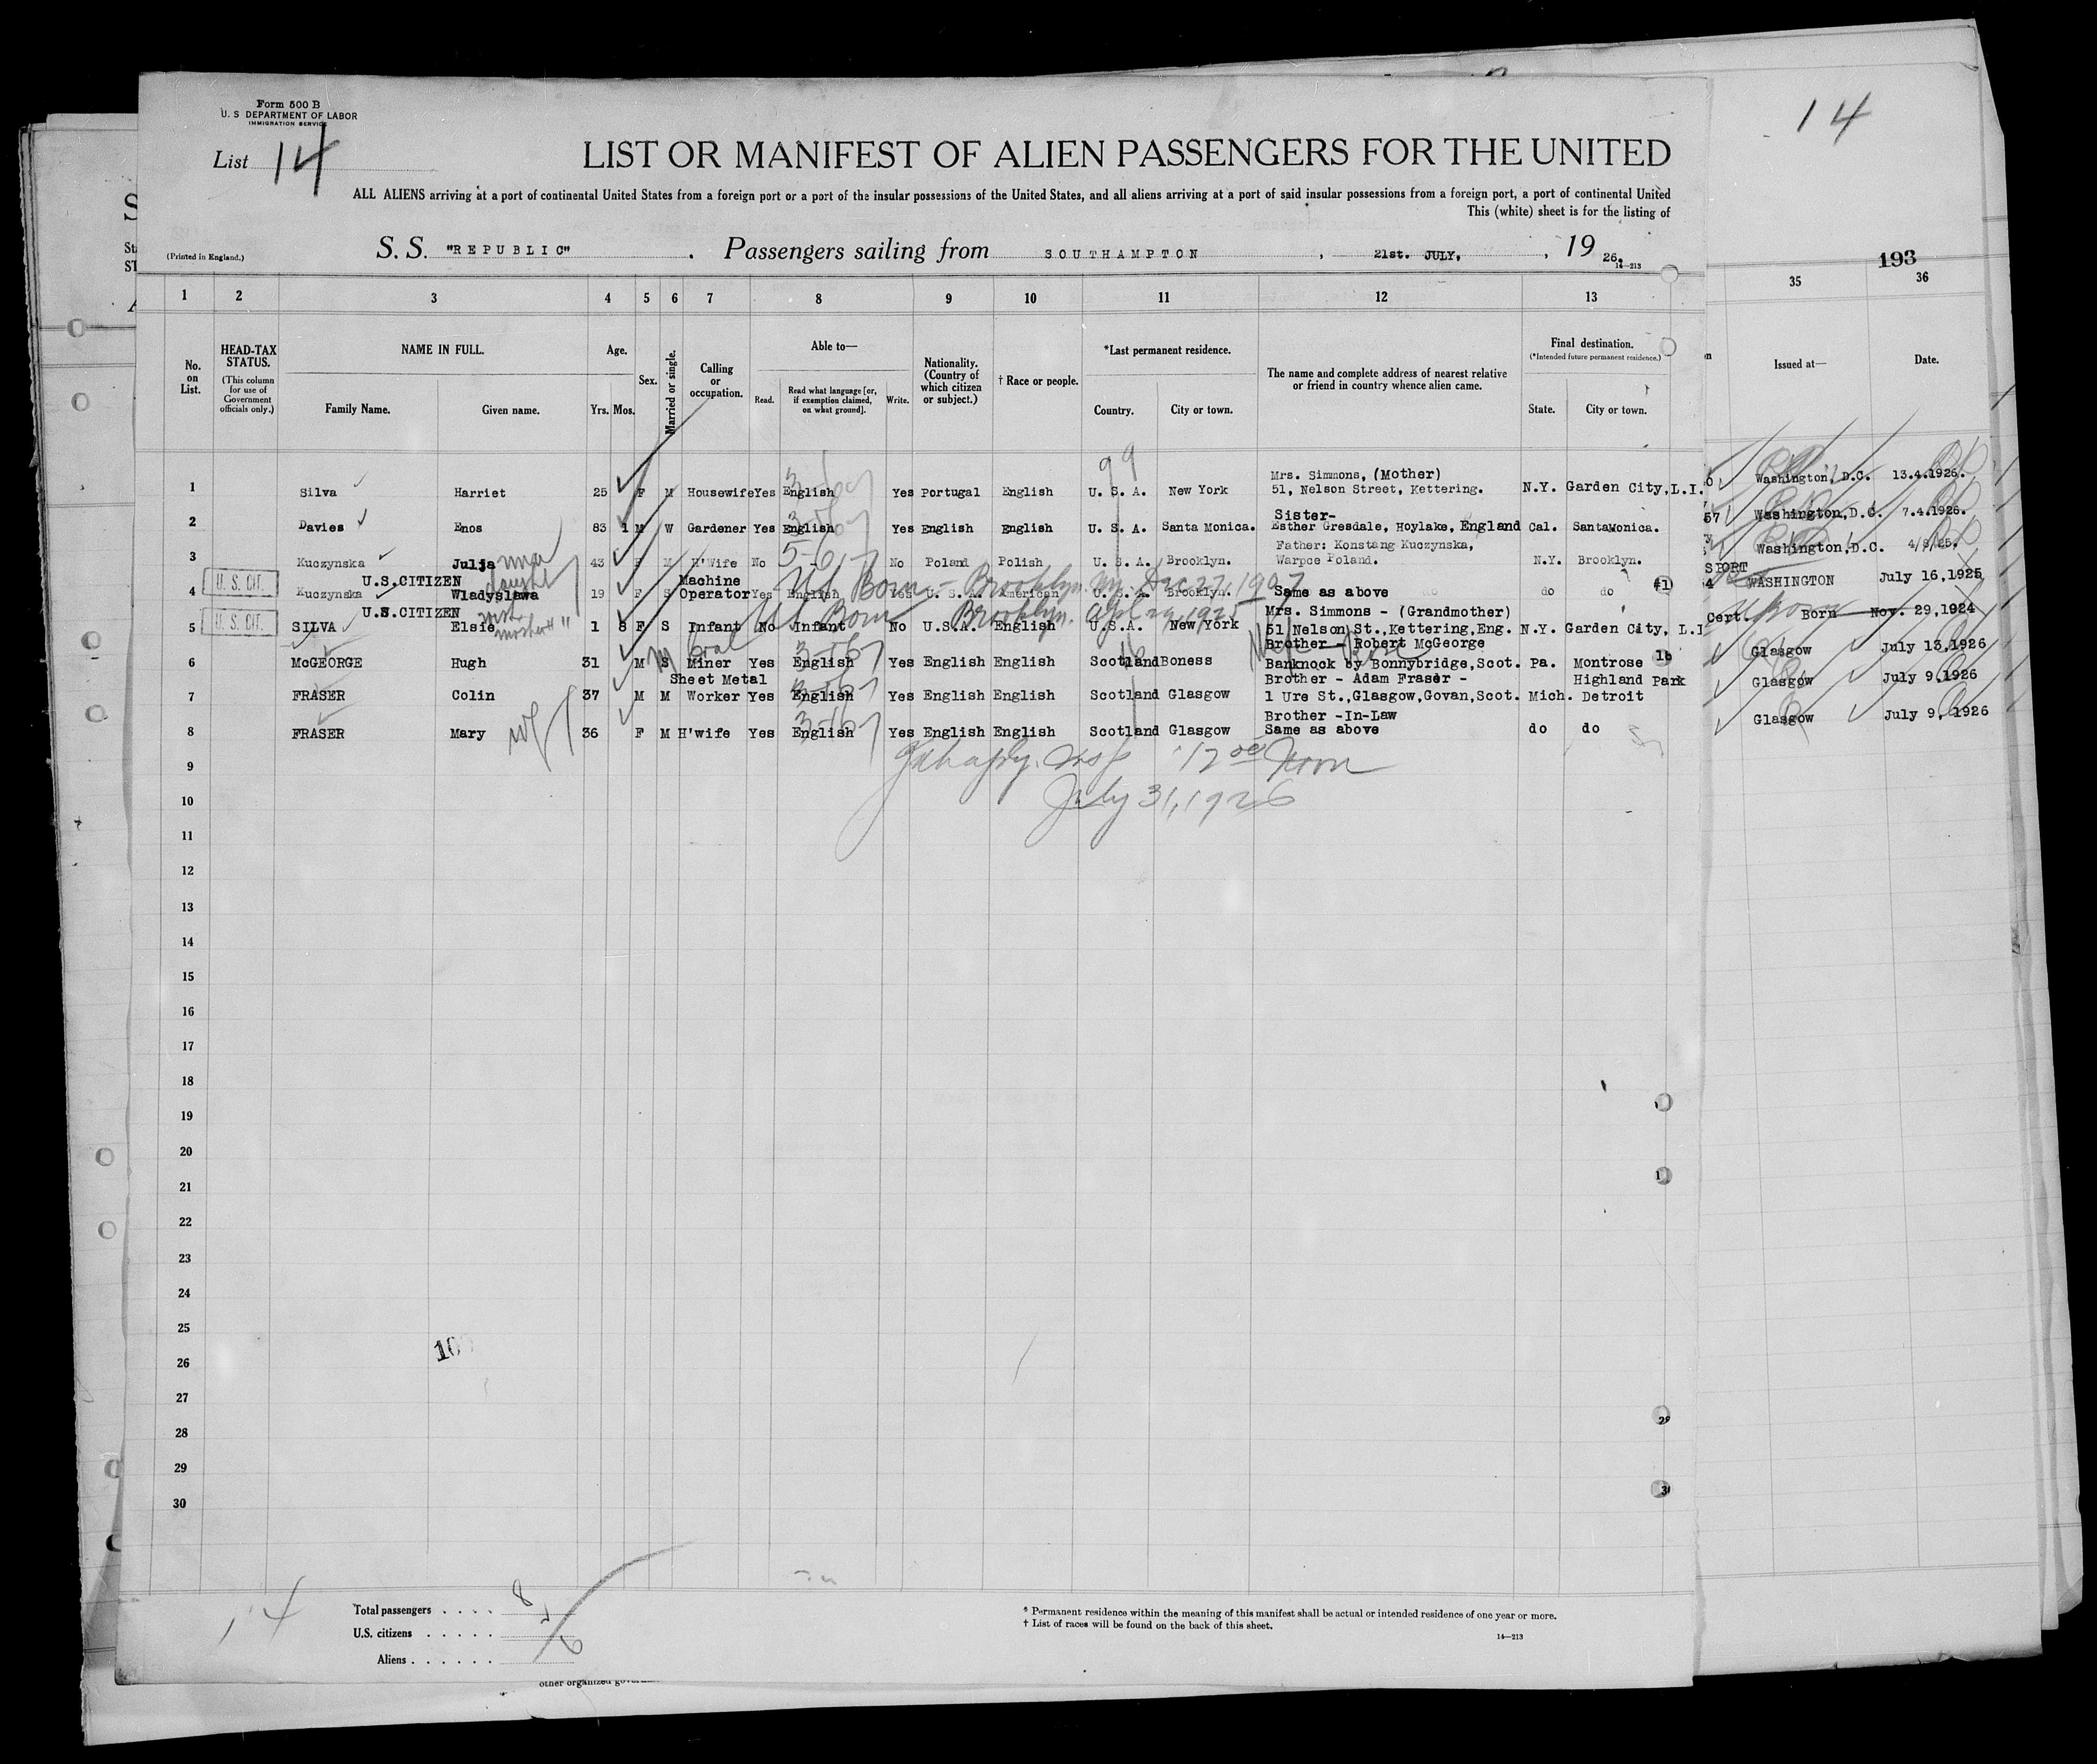 Form 500 B
U. S DEPARTMENT OF LABOR
IMMIGRATION SERVICE
List 14
14
LIST OR MANIFEST OF ALIEN PASSENGERS FOR THE UNITED
ALL ALIENS arriving at a port of continental United States from a foreign port or a port of the insular possessions of the United States, and all aliens arriving at a port of said insular possessions from a foreign port, a port of continental United
This (white) sheet is for the listing of
(Printed in England.)
S. S. "REPUBLIC" . Passengers sailing from SOUTHAMPTON , 21st. JULY, , 19 26.
14—213
193
1 2 3 4 5 6 7 8 9 10 11 12 13 35 36
No. on List.
HEAD-TAX STATUS.
(This column for use of Government officials only.)
NAME IN FULL.
Family Name. Given name.
Age.
Yrs. Mos.
Sex.
Married or single.
Calling or occupation.
Able to—
Read. Read what language [or, if exemption claimed, on what ground]. Write.
Nationality. (Country of which citizen or subject.)
† Race or people.
*Last permanent residence.
Country. City or town.
The name and complete address of nearest relative or friend in country whence alien came.
Final destination.
(*Intended future permanent residence.)
State. City or town.
Issued at— Date.
99
Mrs. Simmons, (Mother)
1 Silva Harriet 25 F M Housewife Yes English Yes Portugal English U. S. A. New York 51, Nelson Street, Kettering. N.Y. Garden City, L.I. Washington, D.C. 13.4.1926.
Sister-
2 Davies Enos 83 1 M W Gardener Yes English Yes English English U. S. A. Santa Monica. Esther Gresdale, Hoylake, England Cal. SantaMonica. 57 Washington,D.C. 7.4.1926.
Father: Konstang Kuczynska,
3 Kuczynska Julja 43 F M H'Wife No 5-6-7 No Poland Polish U. S. A. Brooklyn. Warpce Poland. N.Y. Brooklyn. Washington,D.C.
U.S.CITIZEN Machine SPORT
U. S. CIT.
4 Kuczynska Wladyslawa 19 F S Operator Yes English Yes U. S. A. American U. S. A. Brooklyn. Same as above do do WASHINGTON July 16,1925
US Born - Brooklyn. Ny. Dec 27. 1907
U.S.CITIZEN Mrs. Simmons - (Grandmother)
U. S. CIT.
5 SILVA Elsie 1 8 F S Infant No Infant No U.S.A. English U.S.A. New York 51 Nelson St.,Kettering,Eng. N.Y. Garden City, L.I Cert. Born Nov. 29,1924
US Born Brooklyn.
Coal Brother - Robert McGeorge
6 McGEORGE Hugh 31 M S Miner Yes English Yes English English Scotland Boness Banknock by Bonnybridge,Scot. Pa. Montrose Glasgow July 13,1926
Sheet Metal Brother - Adam Fraser - Highland Park
7 FRASER Colin 37 M M Worker Yes English Yes English English Scotland Glasgow 1 Ure St.,Glasgow,Govan,Scot. Mich. Detroit Glasgow July 9,1926
Brother -In-Law
8 FRASER Mary wf 36 F M H'wife Yes English Yes English English Scotland Glasgow Same as above do do Glasgow July 9, 1926
9
12 00 Noon
10
July 31, 1926
11
12
13
14
15
16
17
18
19
20
21
22
23
24
25
26
27
28
29
30
14
Total passengers . . . . 8
U.S. citizens . . . . .
Aliens . . . . . . 6
* Permanent residence within the meaning of this manifest shall be actual or intended residence of one year or more.
† List of races will be found on the back of this sheet.
14—213
other organized